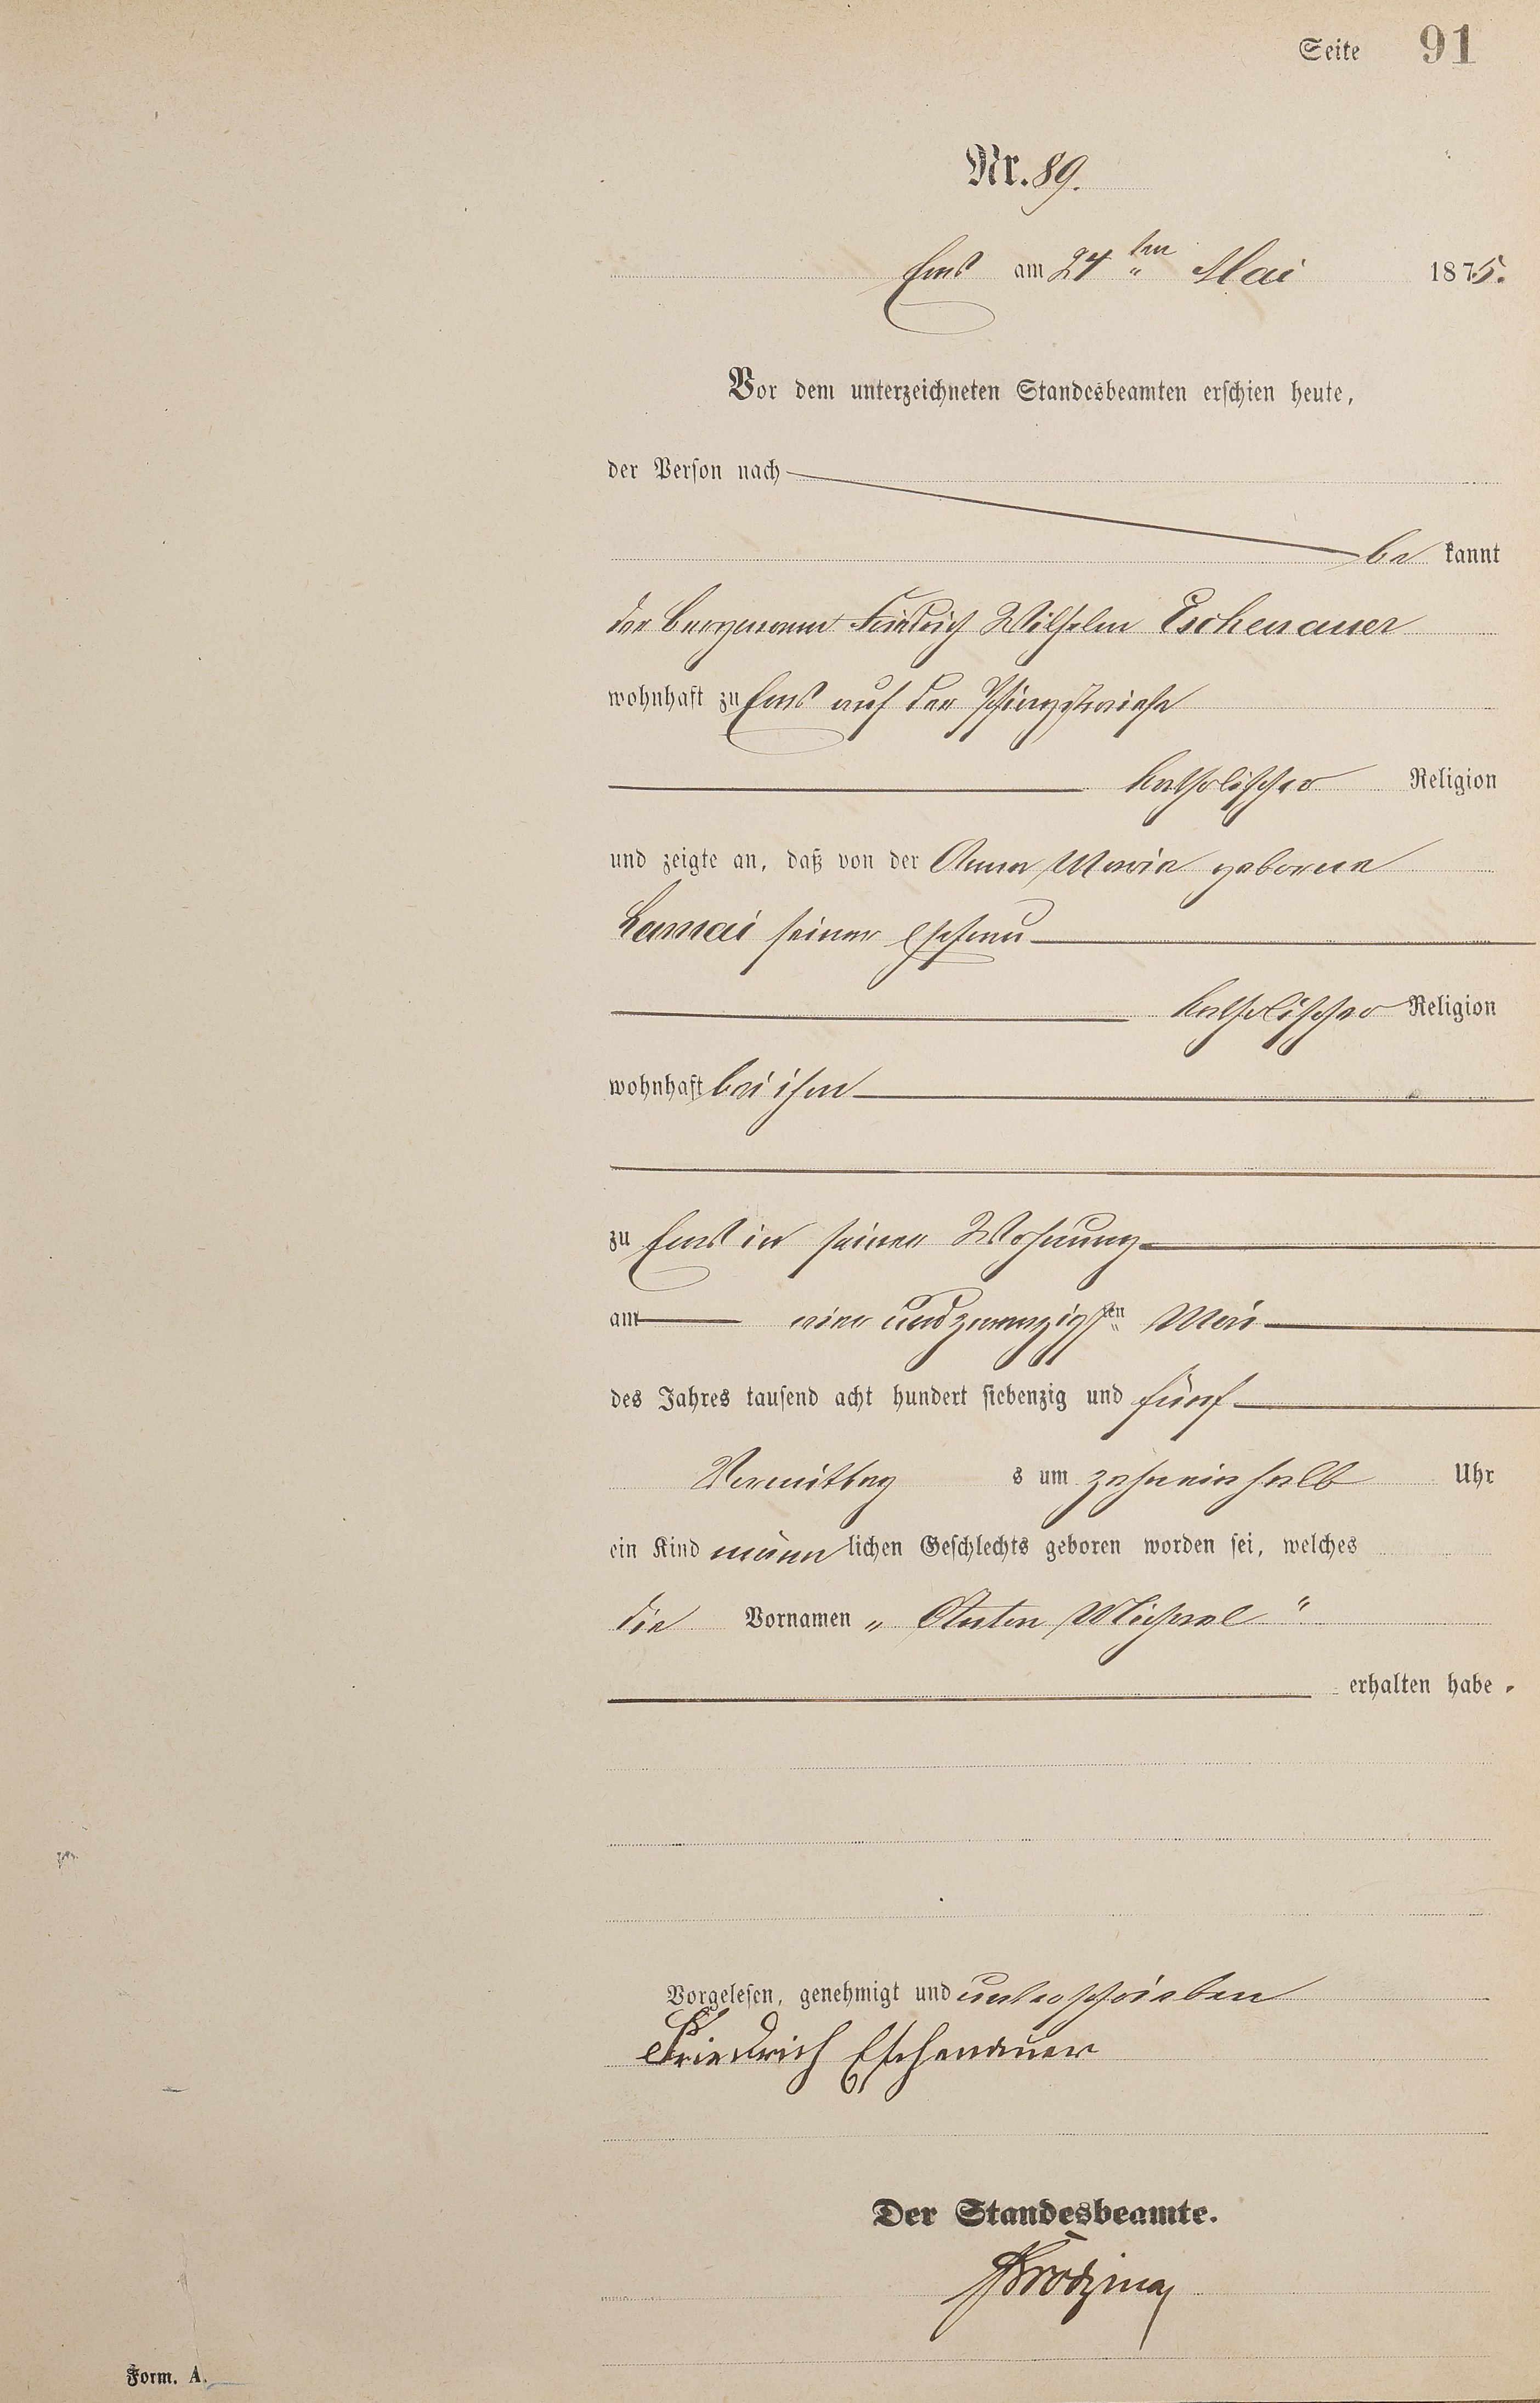 Seite 91
Nr. 89.
Ems am 24ten Mai 1875.
Vor dem unterzeichneten Standesbeamten erschien heute,
der Person nach
be kannt
der Bergmann Friedrich Wilhelm Eschenauer
wohnhaft zu Ems auf der Pfingstwiese
katholischer Religion
und zeigte an, daß von der Anna Maria geborene
seiner Ehefrau
katholischer Religion
wohnhaft bei ihm
zu Ems in seiner Wohnung
am undzwanzigsten Mai
des Jahres tausend acht hundert siebenzig und fünf
Vormittag s um zehneinhalb Uhr
ein Kind männ lichen Geschlechts geboren worden sei, welches
die Vornamen „ Anton Michael "
erhalten habe.
Vorgelesen, genehmigt und unterschrieben
Friedrich Eschenauer
Der Standesbeamte.
Form. A.